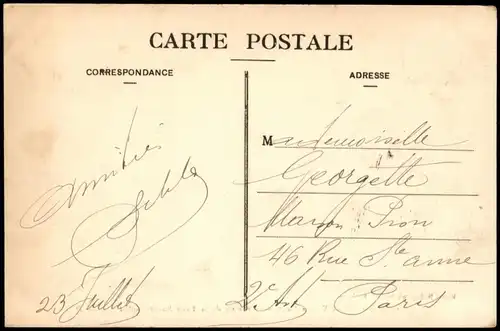 CARTE POSTALE
CORRESPONDANCE
ADRESSE
Amitiés
23 Juillet
Mademoiselle
Georgette
Maison Pion
46 Rue Ste anne
2e Art
Paris